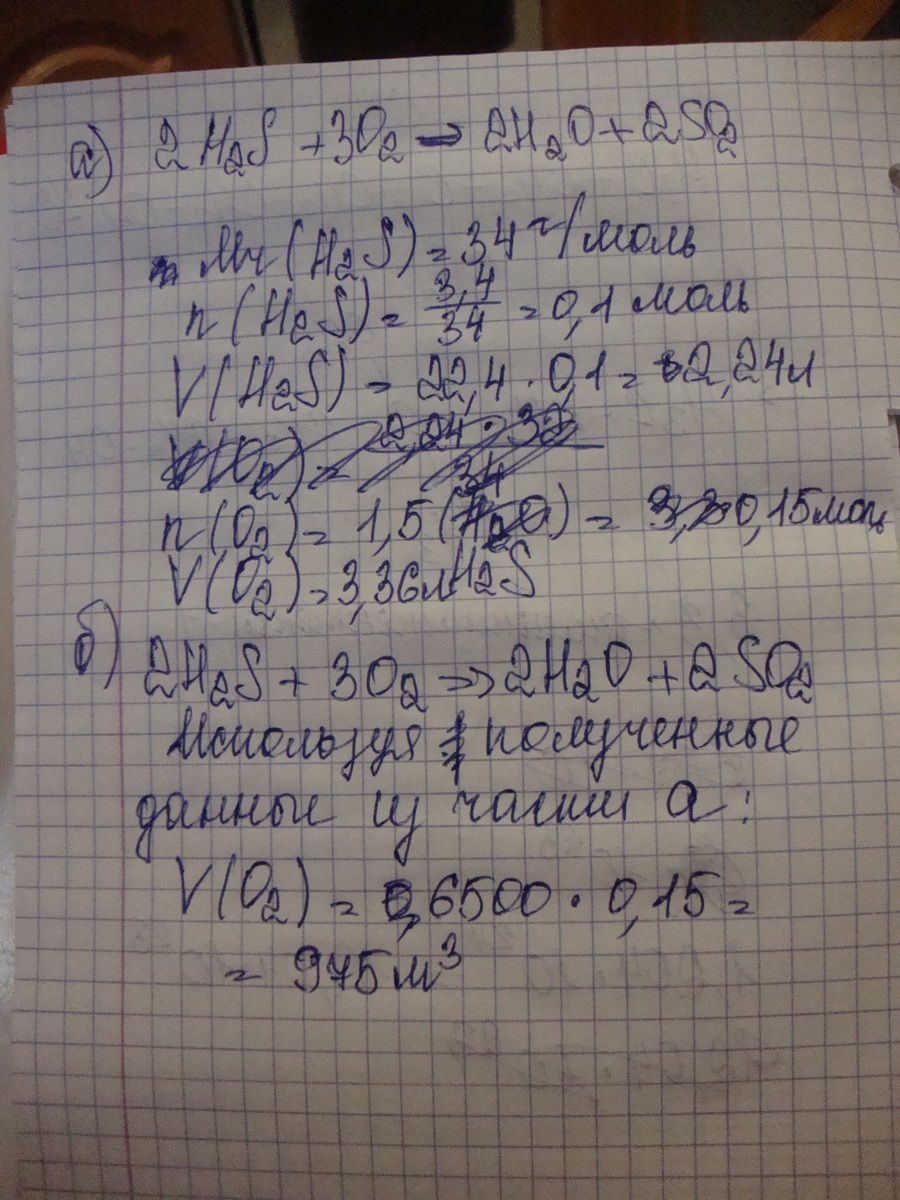 а) 2H₂S + 3O₂ → 2H₂O + 2SO₂
Mr(H₂S) = 34 г/моль
n(H₂S) = 3,4/34 = 0,1 моль
V(H₂S) = 22,4 · 0,1 = 2,24 л
V(O₂) = 2,24 · 32 / 34
n(O₂) = 1,5 (H₂O) = 0,15 моль
V(O₂) = 3,36 л H₂S
б)
2H₂S + 3O₂ → 2H₂O + 2SO₂
Используя полученные
данные из части а:
V(O₂) = 6500 · 0,15 =
= 975 м³